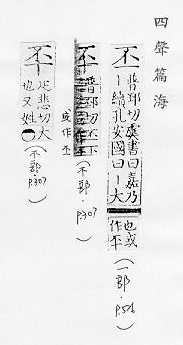 四聲篇海
丕
普邳切虞書曰嘉乃
丨績孔安國曰丨大
也或
作丕
(一部.
普邳切
或作丕
(不部.p.307)
悲切大
也又姓
(不部.p.307)